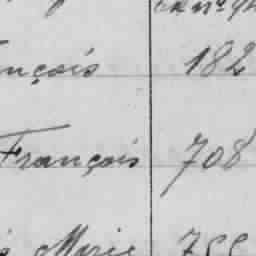 nçois 182
François 708
Marie 755